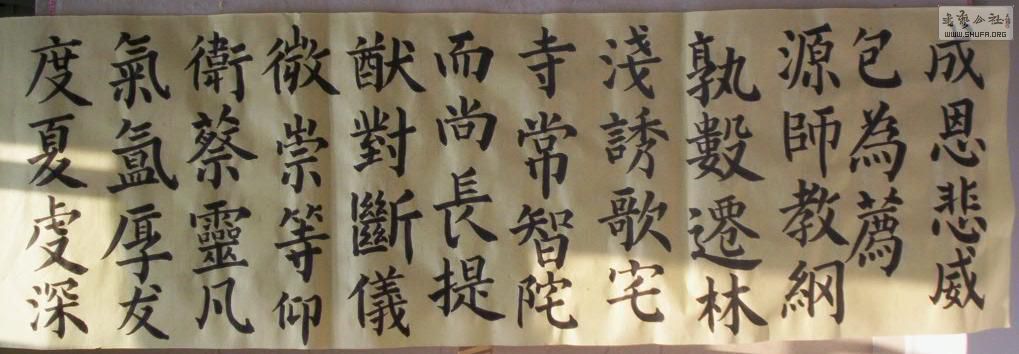 成恩悲威
包為薦
源師教綱
孰數遷林
淺誘歌宅
寺常智陀
而尚長提
猷對斷儀
微崇等仰
衛蔡靈凡
氣氳厚友
度夏虔深
书艺公社
WWW.SHUFA.ORG